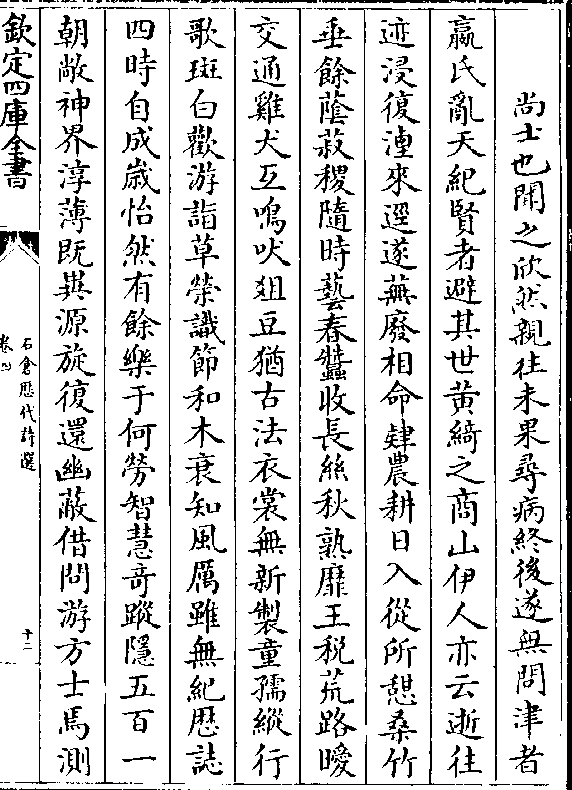 尚士也聞之欣然親往未果尋病終後遂無問津者
嬴氏亂天紀賢者避其世黄綺之商山伊人亦云逝往
迹浸復湮來逕遂蕪廢相命肄農耕日入從所憇桑竹
垂餘蔭菽稷隨時藝春蠶收長絲秋熟靡王税荒路曖
交通雞犬互鳴吠爼豆猶古法衣裳無新製童孺縱行
歌斑白歡游詣草榮識節和木衰知風厲雖無紀歴誌
四時自成歲怡然有餘樂于何勞智慧竒蹤隱五百一
朝敞神界淳薄既異源旋復還幽蔽借問游方士焉測
欽定四庫全書
石倉歴代詩選
卷四
十二